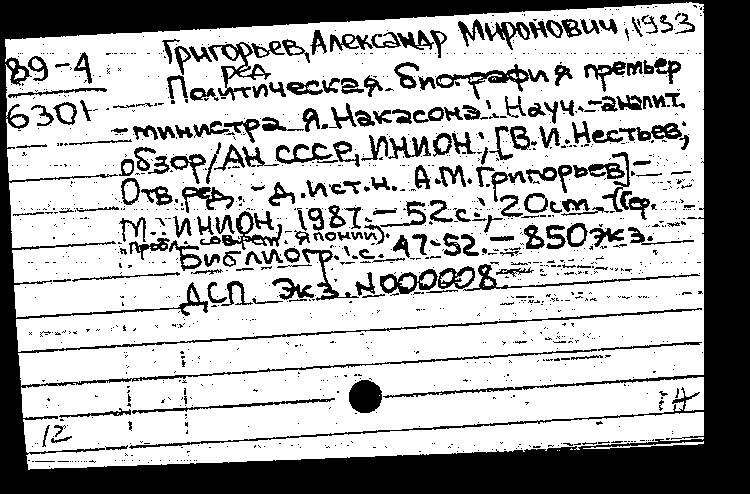 Григорьев, Александр Миронович, 1933
89-4
ред
Политическая биография премьер
6301
-министра Я. Накасона: Науч.-аналит.
обзор / АН СССР, ИНИОН; [В.И. Нестьев;
Отв. ред. - д. ист. н. А.М. Григорьев]. -
М.: ИНИОН, 1987. - 52 с.; 20 см. - (Сер.
"Пробл. соврем. Японии).
Библиогр.: с. 47-52. - 850 экз.
ДСП. Экз. N000008.
12